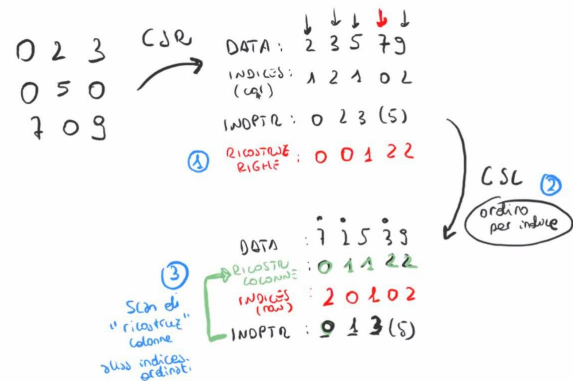 0 2 3
0 5 0
7 0 9
CSR
DATA : 2 3 5 7 9
INDICES : 1 2 1 0 2
(col)
INDPTR : 0 2 3 (5)
① RICOSTRUZ 0 0 1 2 2
RIGHE
CSC ②
ordino
per indice
DATA : 7 2 5 3 9
RICOSTR : 0 1 1 2 2
COLONNE
INDICES : 2 0 1 0 2
(row)
INDPTR : 0 1 3 (5)
③
Scan di
"ricostruz"
colonne
indices
ordinati.